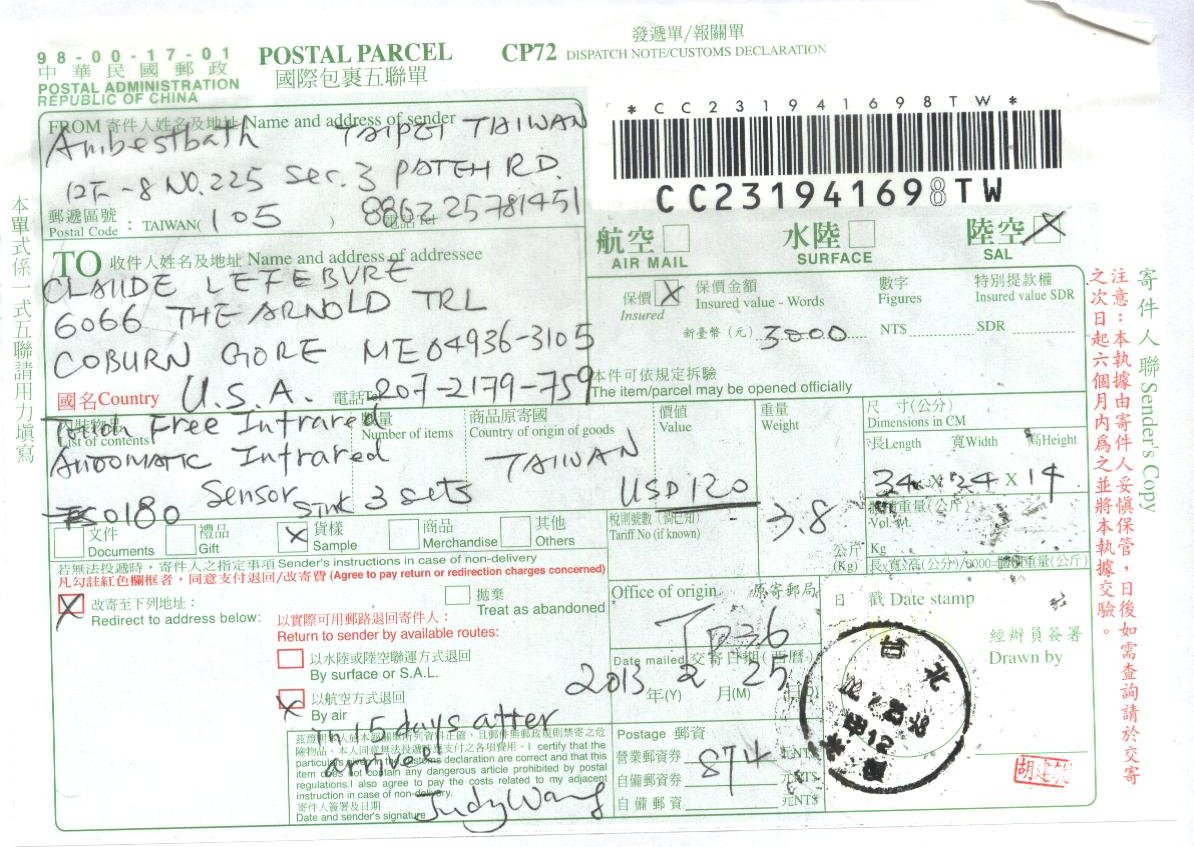 98-00-17-01
中華民國郵政
POSTAL ADMINISTRATION
REPUBLIC OF CHINA
POSTAL PARCEL
國際包裹五聯單
CP72
發遞單/報關單
DISPATCH NOTE/CUSTOMS DECLARATION
*CC231941698TW*
CC231941698TW
FROM 寄件人姓名及地址 Name and address of sender
Ambestbath TAIPEI TAIWAN
12F-8 NO.225 Sec.3 PATEH RD.
郵遞區號
Postal Code : TAIWAN( 105 )
電話 Tel
8862 25781451
航空
AIR MAIL
水陸
SURFACE
陸空
SAL
TO 收件人姓名及地址 Name and address of addressee
CLAUDE LEFEBVRE
6066 THE ARNOLD TRL
COBURN GORE ME04936-3105
國名Country U.S.A. 電話Tel 207-2179-759
保價
Insured
保價金額
Insured value - Words
數字
Figures
特別提款權
Insured value SDR
新臺幣(元) 3000 NT$ SDR
本件可依規定拆驗
The item/parcel may be opened officially
內裝物品
List of contents
數量
Number of items
商品原寄國
Country of origin of goods
價值
Value
重量
Weight
尺 寸(公分)
Dimensions in CM
長Length 寬Width 高Height
34 X 24 X 14
Touch Free Infrared
AUTOMATIC Infrared
Sensor Sink 3 sets
0180
TAIWAN
USD120
3.8
公斤
(Kg)
體積重量(公斤)
Vol. Wt.
Kg
稅則號數(倘已知)
Tariff No (if known)
文件
Documents
禮品
Gift
貨樣
Sample
商品
Merchandise
其他
Others
若無法投遞時,寄件人之指定事項 Sender's instructions in case of non-delivery
凡勾註紅色欄框者,同意支付退回/改寄費 (Agree to pay return or redirection charges concerned)
改寄至下列地址:
Redirect to address below:
拋棄
Treat as abandoned
以實際可用郵路退回寄件人:
Return to sender by available routes:
以水陸或陸空聯運方式退回
By surface or S.A.L.
以航空方式退回
By air
in 15 days after
arrive
I certify that the
particulars given in the customs declaration are correct and that this
item does not contain any dangerous article prohibited by postal
regulations.I also agree to pay the costs related to my adjacent
instruction in case of non-delivery.
寄件人簽署及日期
Date and sender's signature
Judy Wang
Office of origin 原寄郵局
TP36
Date mailed 交寄日期(西曆)
2013 年(Y) 2 月(M) 25 日(D)
Postage 郵資
營業郵資券 874 元NT$
自備郵資券 元NT$
自備郵資 元NT$
日 戳 Date stamp
經辦員簽署
Drawn by
台北
本單式係一式五聯請用力填寫
寄件人聯 Sender's Copy
注意:本執據由寄件人妥慎保管,日後如需查詢請於交寄
之次日起六個月內為之並將本執據交驗。